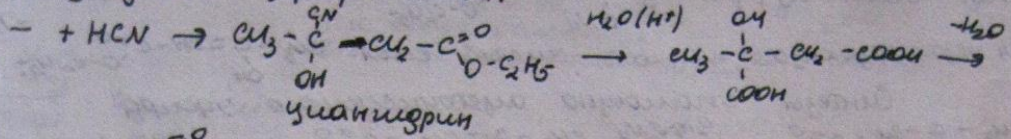 – + HCN → CH₃ – C(CN)(OH) – CH₂ – C(=O)–O–C₂H₅ —H₂O(H⁺)→ CH₃ – C(OH)(COOH) – CH₂ – COOH —-H₂O→
циангидрин